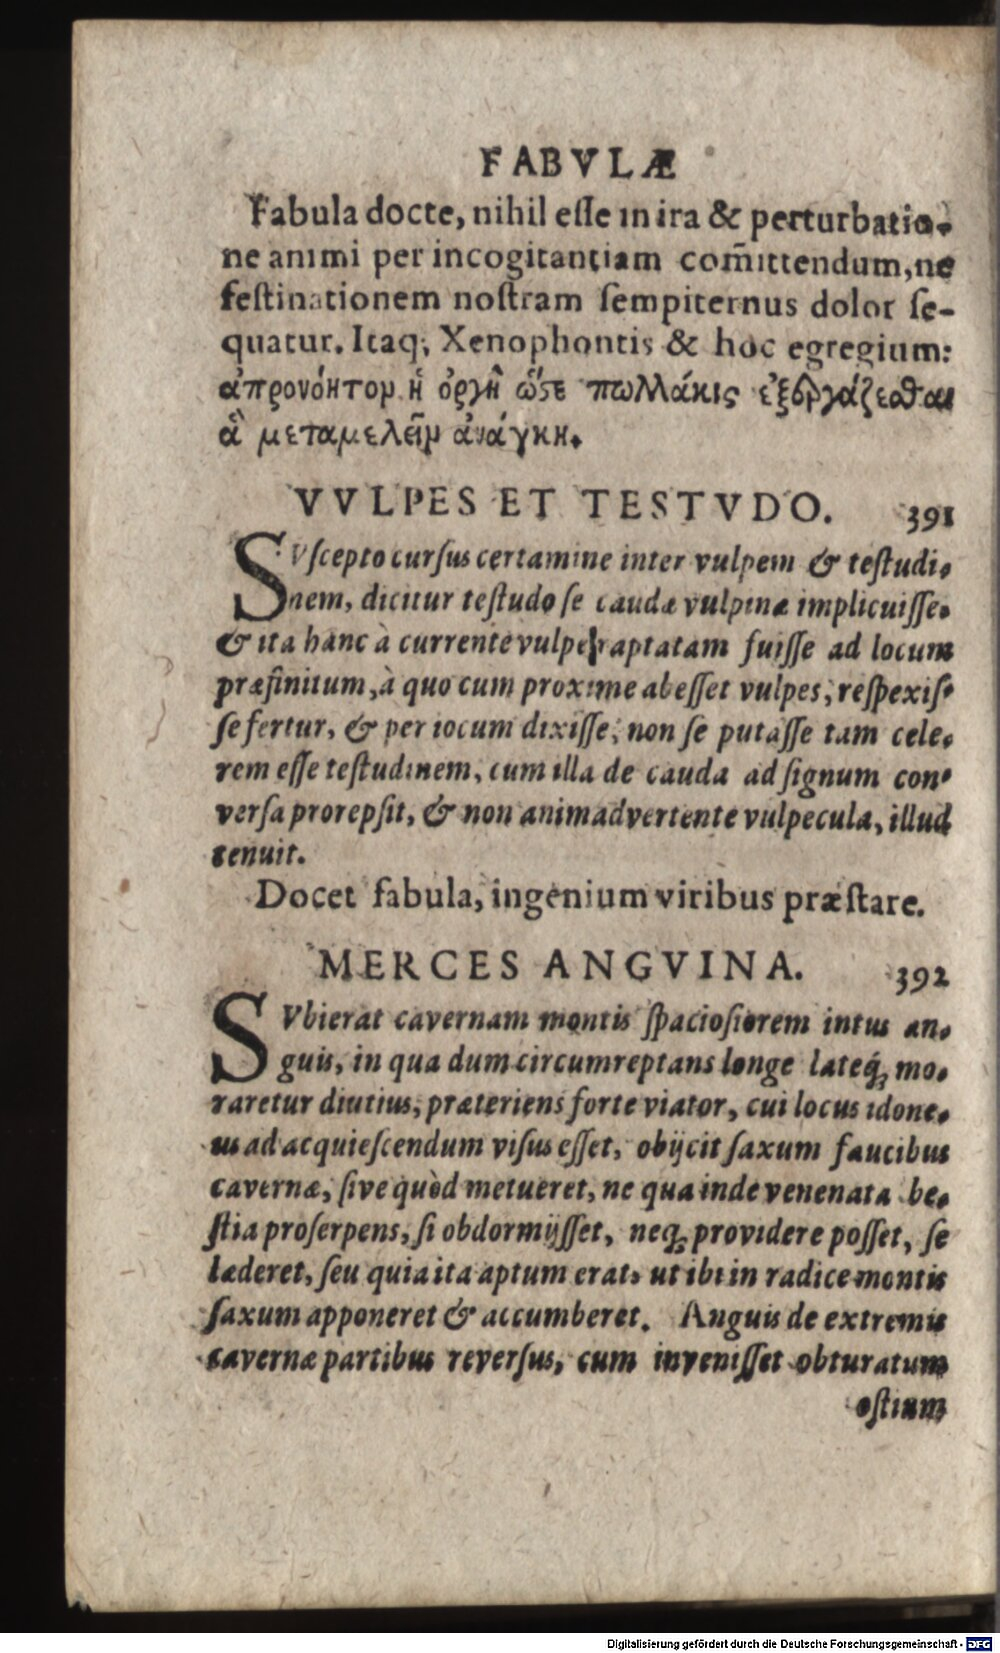 FABVLÆ
Fabula docte, nihil eſſe in ira & perturbatio-
ne animi per incogitantiam com̃ittendum, ne
feſtinationem noſtram ſempiternus dolor ſe-
quatur. Itaq; Xenophontis & hoc egregium:
ἀπρονόητον ἡ ὀργὴ ὥστε πολλάκις ἐξεργάζεσθαι
ἃ μεταμελεῖν ἀνάγκη.
VVLPES ET TESTVDO. 391
SVſcepto curſus certamine inter vulpem & teſtudi-
nem, dicitur teſtudo ſe caudæ vulpinæ implicuiſſe.
& ita hanc à currente vulpe raptatam fuiſſe ad locum
præfinitum, à quo cum proxime abeſſet vulpes, reſpexiſ-
ſe fertur, & per iocum dixiſſe, non ſe putaſſe tam cele-
rem eſſe teſtudinem, cum illa de cauda ad ſignum con-
verſa prorepſit, & non animadvertente vulpecula, illud
tenuit.
Docet fabula, ingenium viribus præſtare.
MERCES ANGVINA. 392
SVbierat cavernam montis ſpacioſiorem intus an-
guis, in qua dum circumreptans longe lateq́; mo-
raretur diutius, præteriens forte viator, cui locus idone-
us ad acquieſcendum viſus eſſet, obijcit ſaxum faucibus
cavernæ, ſive quòd metueret, ne qua inde venenata be-
ſtia proſerpens, ſi obdormijſſet, neq; providere poſſet, ſe
læderet, ſeu quia ita aptum erat, ut ibi in radice montis
ſaxum apponeret & accumberet. Anguis de extremis
cavernæ partibus reverſus, cum inveniſſet obturatum
oſtium
Digitalisierung gefördert durch die Deutsche Forschungsgemeinschaft - DFG